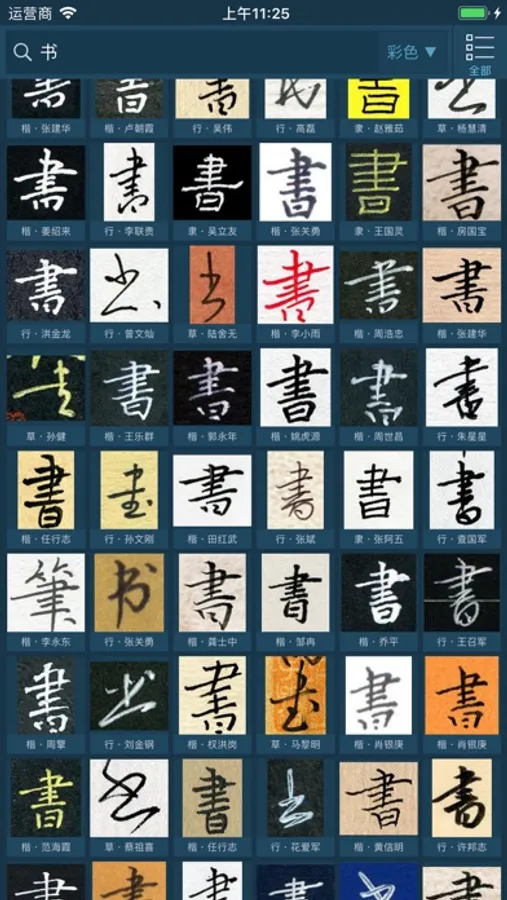 运营商 上午11:25
书 彩色 ▼ 全部
書 書 書 书 書 书
楷·张建华 楷·卢朝霞 行·吴伟 行·高磊 隶·赵雅茹 草·杨慧清
書 書 書 書 書 書
楷·姜绍来 行·李联贵 隶·吴立友 楷·张关勇 隶·王国灵 楷·房国宝
書 书 书 書 書 書
行·洪金龙 行·曾文灿 草·陆舍无 楷·李小雨 楷·周浩忠 楷·张建华
书 書 書 書 書 書
草·孙健 楷·王乐群 楷·郭永年 楷·姚虎源 楷·周世昌 行·朱星星
書 書 書 書 書 書
楷·任行志 行·孙文刚 楷·田红武 行·张斌 隶·张阿五 行·查国军
筆 书 書 書 書 書
楷·李永东 行·张关勇 楷·龚士中 楷·邹冉 楷·乔平 行·王召军
書 书 書 書 書 書
楷·周擎 行·刘金钢 楷·权洪岗 草·马黎明 楷·肖银庚 楷·肖银庚
書 书 書 书 書 書
楷·范海霞 草·蔡祖喜 楷·任行志 行·花爱军 楷·黄信明 行·许邦志